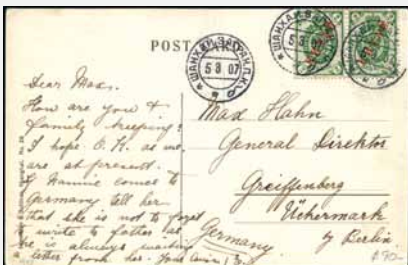 POST CARD
ШАНХАЙ
5 3 07
5 3 07
Dear Max.
How are you &
family keeping?
I hope O.K. as we
are at present.
If Nannie comes to
Germany tell her
that she is not to forget
to write to father as
he is always waiting
a letter from her. Your
Max Hahn
General Direktor
Greiffenberg
Uckermark
by Berlin
Germany